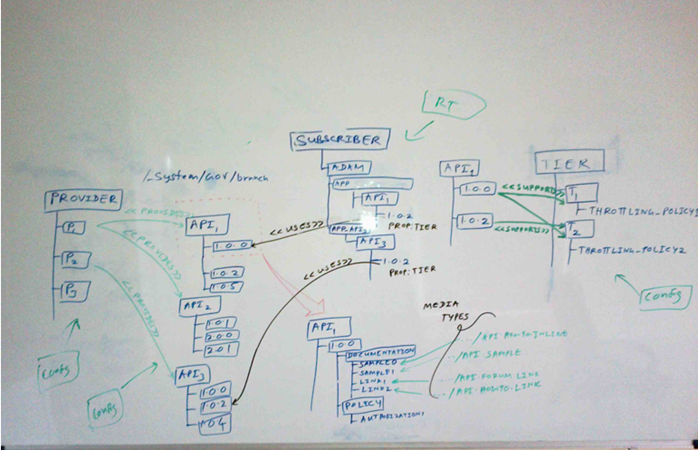 RT
SUBSCRIBER
ADAM
APP
API1
1.0.2
PROP:TIER
API3
1.0.2
PROP:TIER
/_System/Gov/branch
PROVIDER
P1
P2
P3
<<PROVIDES>>
<<PROVIDES>>
<<PROVIDES>>
API1
1.0.0
1.0.2
1.0.5
API2
1.0.1
2.0.0
2.0.1
API3
1.0.0
1.0.2
1.0.4
<<USES>>
<<USES>>
API1
1.0.0
1.0.2
<<SUPPORTS>>
<<SUPPORTS>>
TIER
T1
THROTTLING_POLICY1
T2
THROTTLING_POLICY2
Config
Config
Config
API1
1.0.0
DOCUMENTATION
SAMPLE0
SAMPLE1
LINK1
LINK2
POLICY
AUTHORIZATION1
MEDIA
TYPES
/API.SAMPLE
/API.FORUM.LINK
/API.HOWTO.LINK